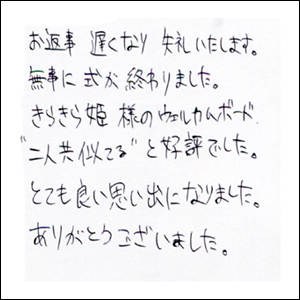 お返事 遅くなり 失礼いたします。
無事に 式が 終わりました。
きらきら姫 様のウェルカムボード、
"二人共似てる"と好評でした。
とても良い思い出になりました。
ありがとうございました。